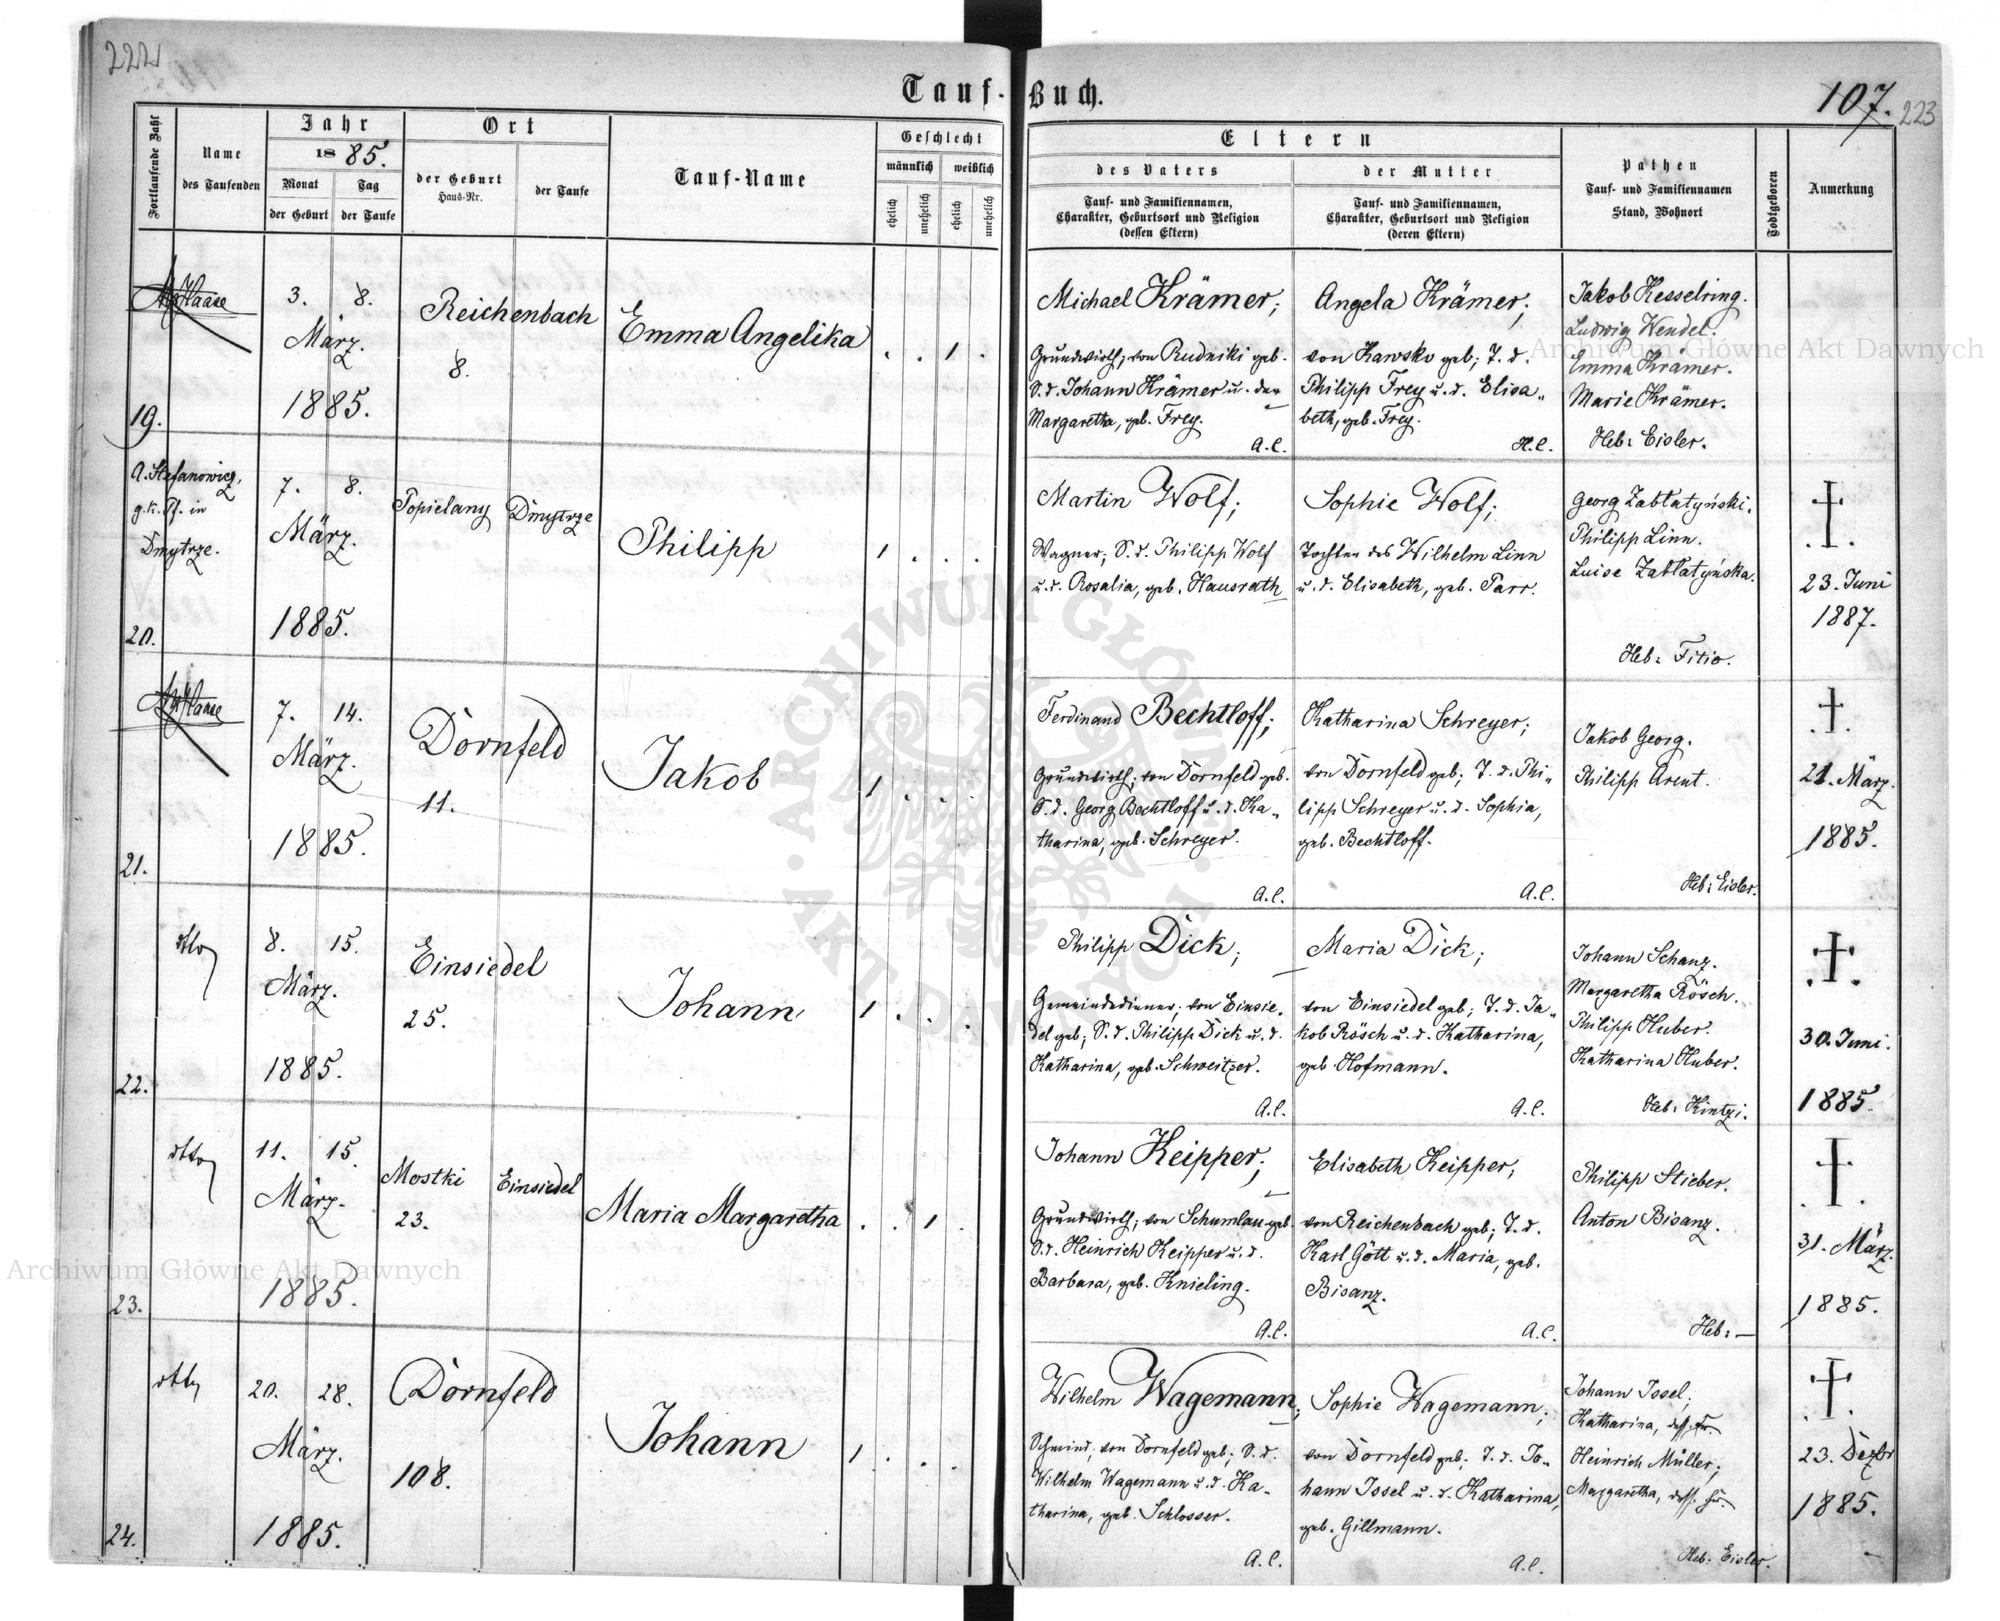 222
Tauf-Buch.
107.
223
Fortlaufende Zahl
Name
des Taufenden
Jahr
1885.
Monat
der Geburt
Tag
der Taufe
Ort
der Geburt
Haus-Nr.
der Taufe
Tauf-Name
Geschlecht
männlich
weiblich
ehelich
unehelich
ehelich
unehelich
Eltern
des Vaters
Tauf- und Familiennamen,
Charakter, Geburtsort und Religion
(dessen Eltern)
der Mutter
Tauf- und Familiennamen,
Charakter, Geburtsort und Religion
(deren Eltern)
Pathen
Tauf- und Familiennamen
Stand, Wohnort
Todtgeboren
Anmerkung
19.
Haase
3. 8.
März.
1885.
Reichenbach
8.
Emma Angelika
. . 1 .
Michael Krämer;
Grundwirth; von Rudniki geb.
S. d. Johann Krämer u. der
Margaretha, geb. Frey.
A.C.
Angela Krämer;
von Kawsko geb; T. d.
Philipp Frey u. d. Elisa„
beth, geb. Frey.
H.C.
Jakob Kesselring.
Ludwig Wendel.
Emma Krämer.
Marie Krämer.
Heb: Eisler.
20.
A. Stefanowicz,
g. k. Pf. in
Dmytrze.
7. 8.
März.
1885.
Popielany
Dmytrze
Philipp
1 . . .
Martin Wolf;
Wagner; S. d. Philipp Wolf
u. d. Rosalia, geb. Hausrath
Sophie Wolf;
Tochter des Wilhelm Linn
u. d. Elisabeth, geb. Parr.
Georg Zabłatyński.
Philipp Linn.
Luise Zabłatyńska.
Heb: Fitio.
†
23. Juni
1887.
21.
Haase
7. 14.
März.
1885.
Dornfeld
11.
Jakob
1 . . .
Ferdinand Bechtloff;
Grundwirth; von Dornfeld geb.
S. d. Georg Bechtloff u. d. Ka„
tharina, geb. Schreyer.
A.C.
Katharina Schreyer;
von Dornfeld geb; T. d. Phi„
lipp Schreyer u. d. Sophia,
geb. Bechtloff.
A.C.
Jakob Georg.
Philipp Arent.
Heb: Eisler.
†
21. März.
1885.
22.
dtto
8. 15.
März.
1885.
Einsiedel
25.
Johann
1 . . .
Philipp Dick;
Gemeindediener; von Einsie„
del geb; S. d. Philipp Dick u. d.
Katharina, geb. Schweitzer.
A.C.
Maria Dick;
von Einsiedel geb; T. d. Ja„
kob Rösch u. d. Katharina,
geb. Hofmann.
A.C.
Johann Schanz.
Margaretha Rösch.
Philipp Huber.
Katharina Huber.
Heb: Kintzi.
†
30. Juni.
1885.
23.
dtto
11. 15.
März.
1885.
Mostki
23.
Einsiedel
Maria Margaretha
. . 1 .
Johann Keipper;
Grundwirth; von Schumlau geb.
S. d. Heinrich Keipper u. d.
Barbara, geb. Knieling.
A.C.
Elisabeth Keipper;
von Reichenbach geb; T. d.
Karl Gött u. d. Maria, geb.
Bisanz.
A.C.
Philipp Stieber.
Anton Bisanz.
Heb: —
†
31. März.
1885.
24.
dtto
20. 28.
März.
1885.
Dornfeld
108.
Johann
1 . . .
Wilhelm Wagemann;
Schmied; von Dornfeld geb; S. d.
Wilhelm Wagemann u. d. Ka„
tharina, geb. Schlosser.
A.C.
Sophie Wagemann;
von Dornfeld geb; T. d. Jo„
hann Issel u. d. Katharina,
geb. Gillmann.
A.C.
Johann Issel;
Katharina, dess. Fr.
Heinrich Müller;
Margaretha, dess. Fr.
Heb: Eisler.
†
23. Dezbr
1885.
Archiwum Główne Akt Dawnych
Archiwum Główne Akt Dawnych
ARCHIWUM GŁÓWNE AKT DAWNYCH